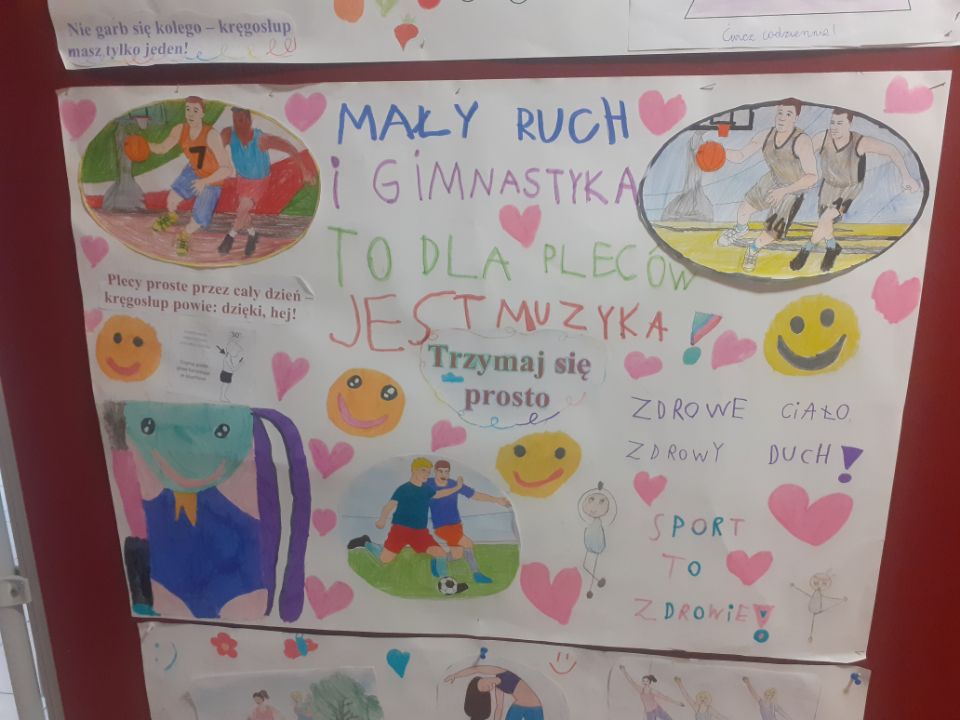 Nie garb się kolego – kręgosłup
masz tylko jeden!
Ćwicz codziennie!
MAŁY RUCH
i GIMNASTYKA
TO DLA PLECÓW
JEST MUZYKA!
Plecy proste przez cały dzień –
kręgosłup powie: dzięki, hej!
Trzymaj się
prosto
ZDROWE CIAŁO
ZDROWY DUCH!
SPORT
TO
ZDROWIE!
7
14
11